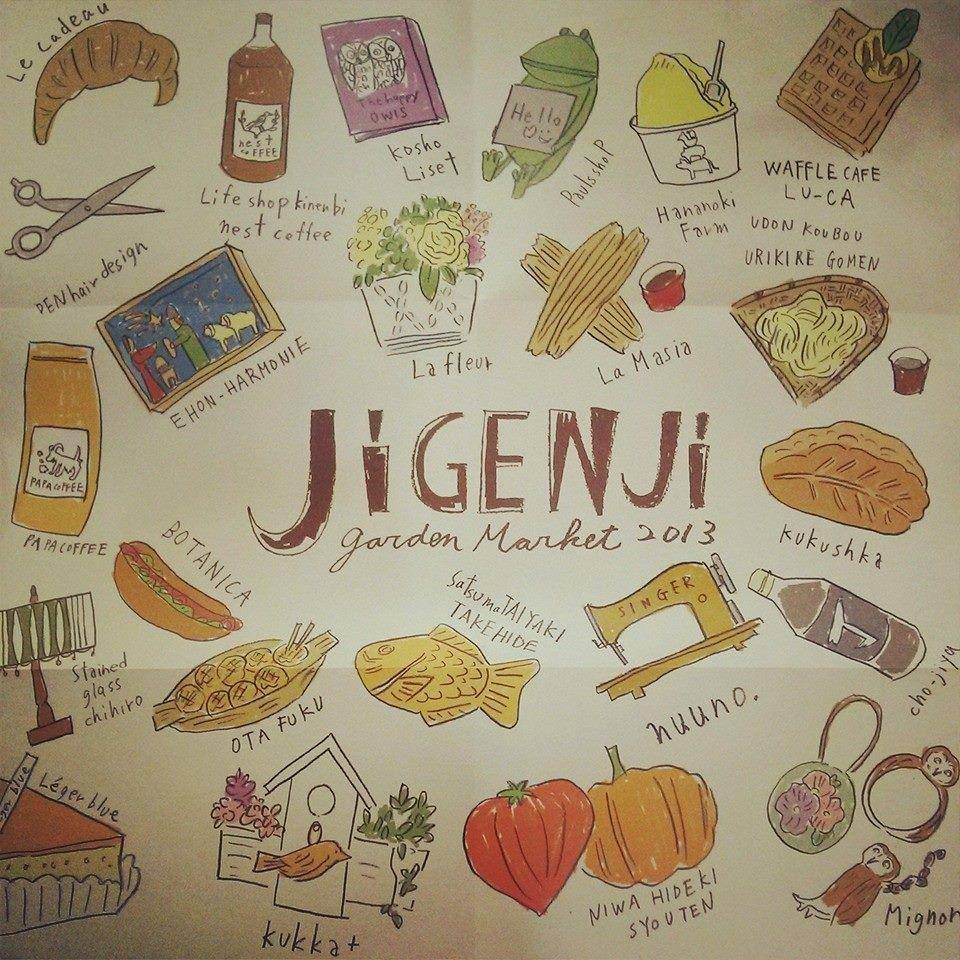 Le cadeau
nest
COFFEE
Life shop kinenbi
nest coffee
the happy
OWLS
kosho
Liset
Hello
Paulsshop
Hananoki
Farm
WAFFLE CAFE
LU-CA
UDON KOUBOU
URIKIRE GOMEN
PEN hair design
EHON-HARMONIE
La fleur
La Masia
PAPACOFFEE
PAPACOFFEE
JiGENJi
garden Market 2013
kukushka
BOTANICA
Satsuma TAIYAKI
TAKEHIDE
SINGER
nuuno.
cho-jiya
Stained
glass
chihiro
OTAFUKU
Léger blue
ger blue
kukka+
NIWA HIDEKI
SYOUTEN
Mignon